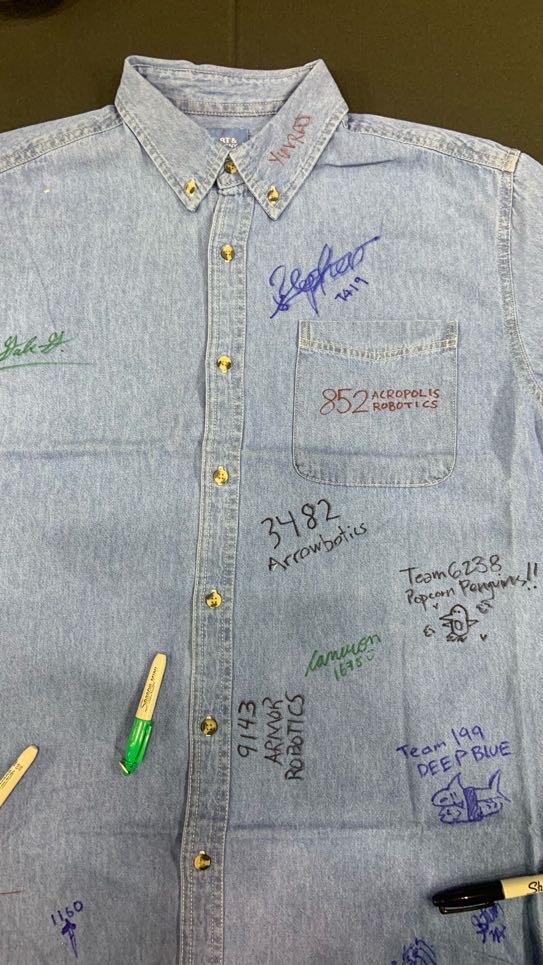 YVNRAJ
7419
Gale G.
852 ACROPOLIS
ROBOTICS
3482
Arrowbotics
Team 6238
Popcorn Penguins!!
Cameron
1675
9143
ARMOR
ROBOTICS
Team 199
DEEP BLUE
1160
Sh